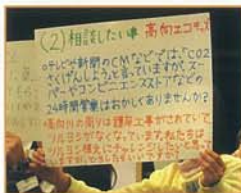 (2)相談したい事 高向エコキッズ
○テレビや新聞のCMなどでは、「CO2
さくげんしよう」と言っていますが、スー
パーやコンビニエンスストアなどの
24時間営業はおかしくありませんか?
○高向川の周りは護岸工事がされていて
ツルヨシがなくなっています。私たちは
ツルヨシ植えにチャレンジしたいと思って